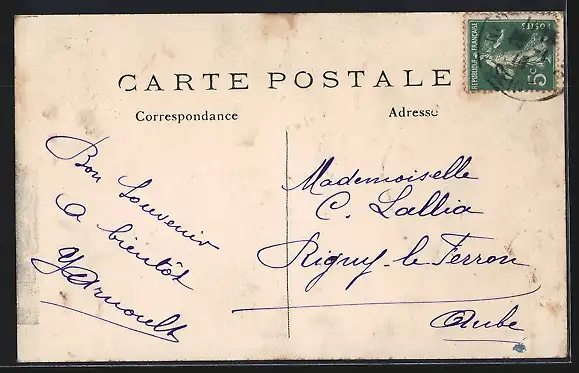 POSTES
REPUBLIQUE FRANÇAISE
5c
CARTE POSTALE
Correspondance
Adresse
Bon Souvenir
a bientôt
Y Arnoult
Mademoiselle
C. Lallia
Rigny-le-Ferron
Aube